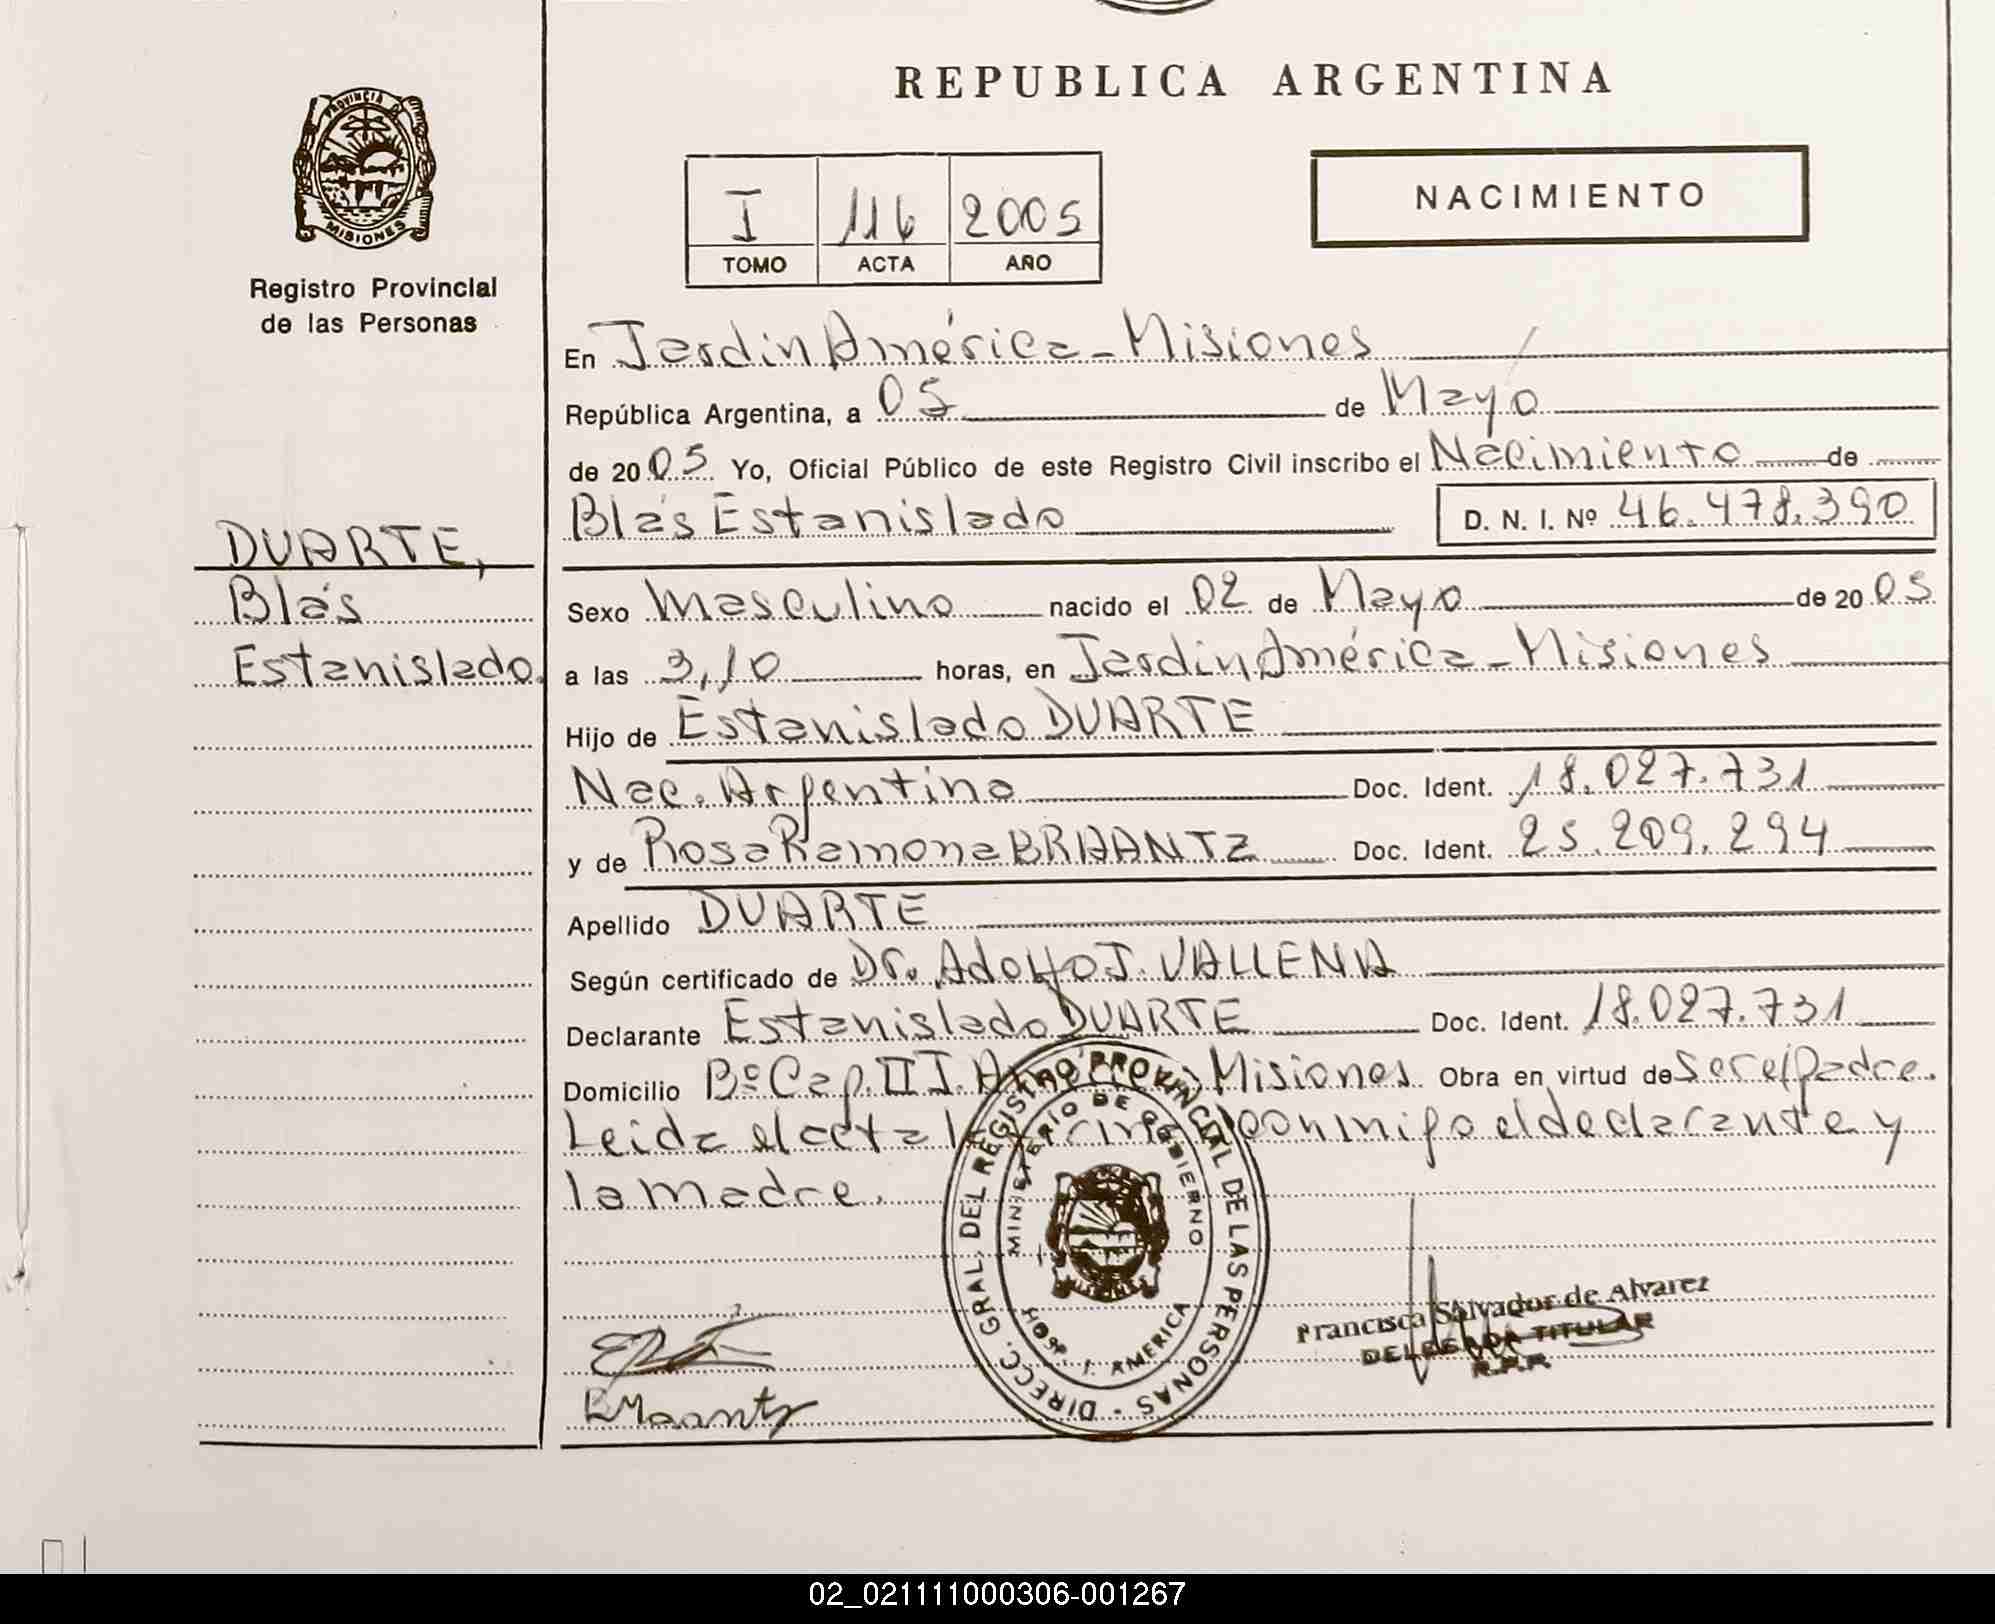 REPUBLICA ARGENTINA
PROVINCIA DE
MISIONES
Registro Provincial
de las Personas
I 116 2005
TOMO ACTA AÑO
NACIMIENTO
DUARTE,
Blás
Estanislado.
En Jardin América - Misiones
República Argentina, a 05 de Mayo
de 2005 Yo, Oficial Público de este Registro Civil inscribo el Nacimiento de
Blás Estanislado D. N. I. Nº 46.478.390
Sexo Masculino nacido el 02 de Mayo de 2005
a las 3,10 horas, en Jardin América - Misiones
Hijo de Estanislado DUARTE
Nac. Argentino Doc. Ident. 18.027.731
y de Rosa Ramona BRAANTZ Doc. Ident. 25.209.294
Apellido DUARTE
Según certificado de Dr. Adolfo J. VALLENA
Declarante Estanislado DUARTE Doc. Ident. 18.027.731
Domicilio Bº Cap. III J. América Misiones Obra en virtud de ser el padre.
Leida el acta conmigo el declarante y
la madre.
DIRECC. GRAL. DEL REGISTRO PROVINCIAL DE LAS PERSONAS
MINISTERIO DE GOBIERNO
HOSP. J. AMERICA
Francisca Salvador de Alvarez
DELEGADA TITULAR
R.P.P.
Braantz
02_021111000306-001267